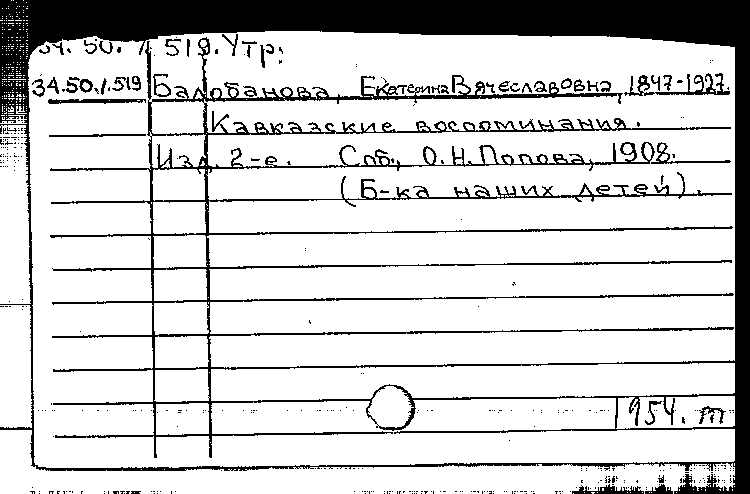 34. 50. / 519. Утр.
34.50./.519 Балобанова, Екатерина Вячеславовна, 1847-1927.
Кавказские воспоминания.
Изд. 2-е. Спб., О.Н. Попова, 1908.
(Б-ка наших детей).
1954. т